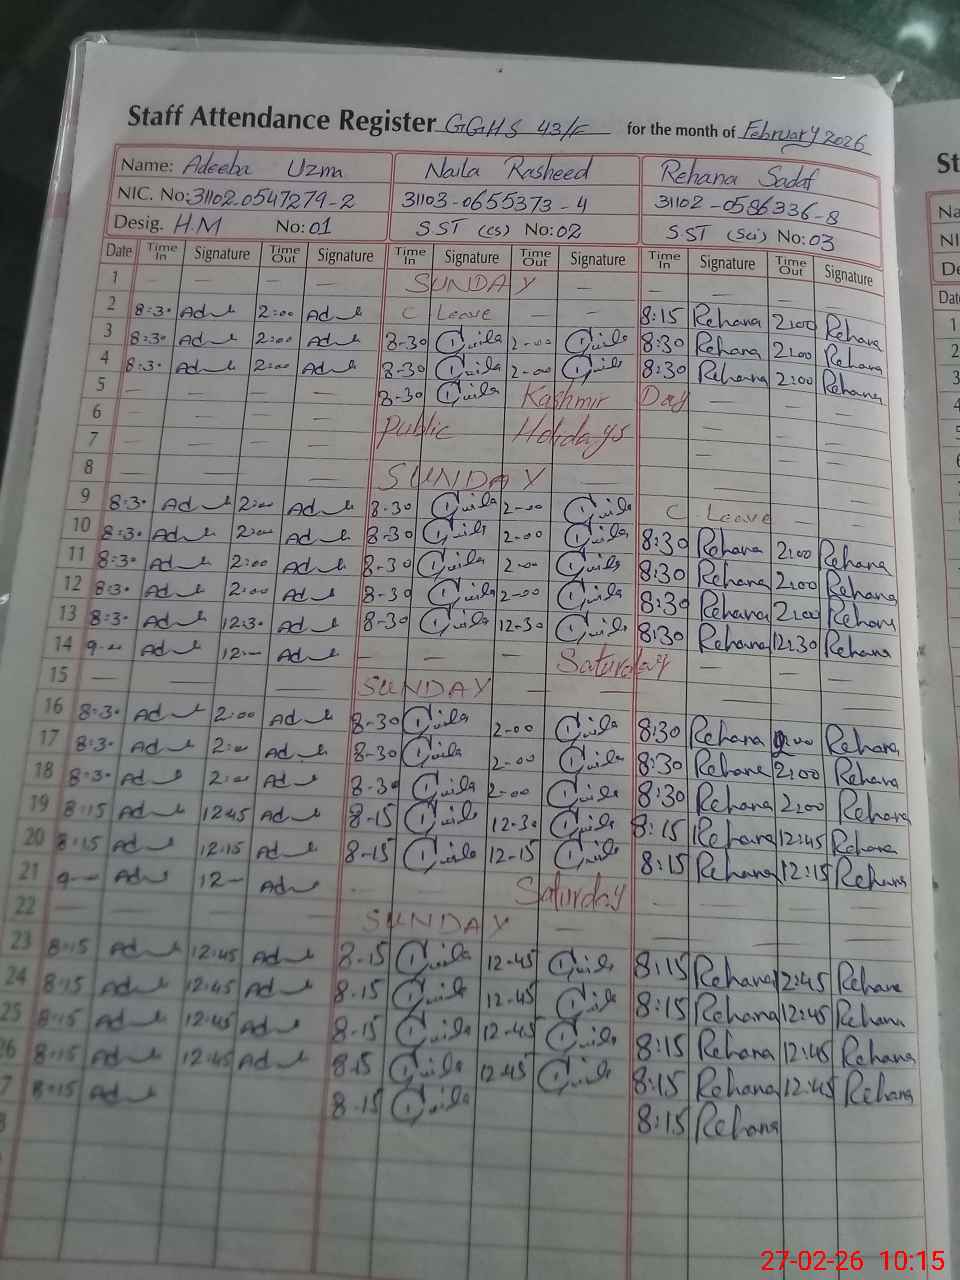 Staff Attendance Register GGHS 43/F for the month of February 2026
Name: Adeeba Uzma Naila Rasheed Rehana Sadaf
NIC. No: 31102.0547279-2 31103-0655373-4 31102-0586336-8
Desig. H.M No: 01 SST (cs) No: 02 SST (Sci) No: 03
Date Time In Signature Time Out Signature Time In Signature Time Out Signature Time In Signature Time Out Signature
1 SUNDAY
2 8:30 2:00 C Leave 8:15 Rehana 2:00 Rehana
3 8:30 2:00 8-30 2-00 8:30 Rehana 2:00 Rehana
4 8:30 2:00 8-30 2-00 8:30 Rehana 2:00 Rehana
5 8-30 Kashmir Day
6 Public Holidays
7
8 SUNDAY
9 8:30 2:00 8-30 2-00 C Leave
10 8:30 2:00 8-30 2-00 8:30 Rehana 2:00 Rehana
11 8:30 2:00 8-30 2-00 8:30 Rehana 2:00 Rehana
12 8:30 2:00 8-30 2-00 8:30 Rehana 2:00 Rehana
13 8:30 12:30 8-30 12-30 8:30 Rehana 12:30 Rehana
14 9-00 12- Saturday
15 SUNDAY
16 8:30 2:00 8-30 2-00 8:30 Rehana 2:00 Rehana
17 8:30 2:00 8-30 2-00 8:30 Rehana 2:00 Rehana
18 8:30 2:00 8-30 2-00 8:30 Rehana 2:00 Rehana
19 8:15 12:45 8-15 12-30 8:15 Rehana 12:45 Rehana
20 8:15 12:15 8-15 12-15 8:15 Rehana 12:15 Rehana
21 9- 12- Saturday
22 SUNDAY
23 8:15 12:45 8-15 12-45 8:15 Rehana 12:45 Rehana
24 8:15 12:45 8-15 12-45 8:15 Rehana 12:45 Rehana
25 8:15 12:45 8-15 12-45 8:15 Rehana 12:45 Rehana
26 8:15 12:45 8-15 12-45 8:15 Rehana 12:45 Rehana
7 8:15 8-15 8:15 Rehana
27-02-26 10:15